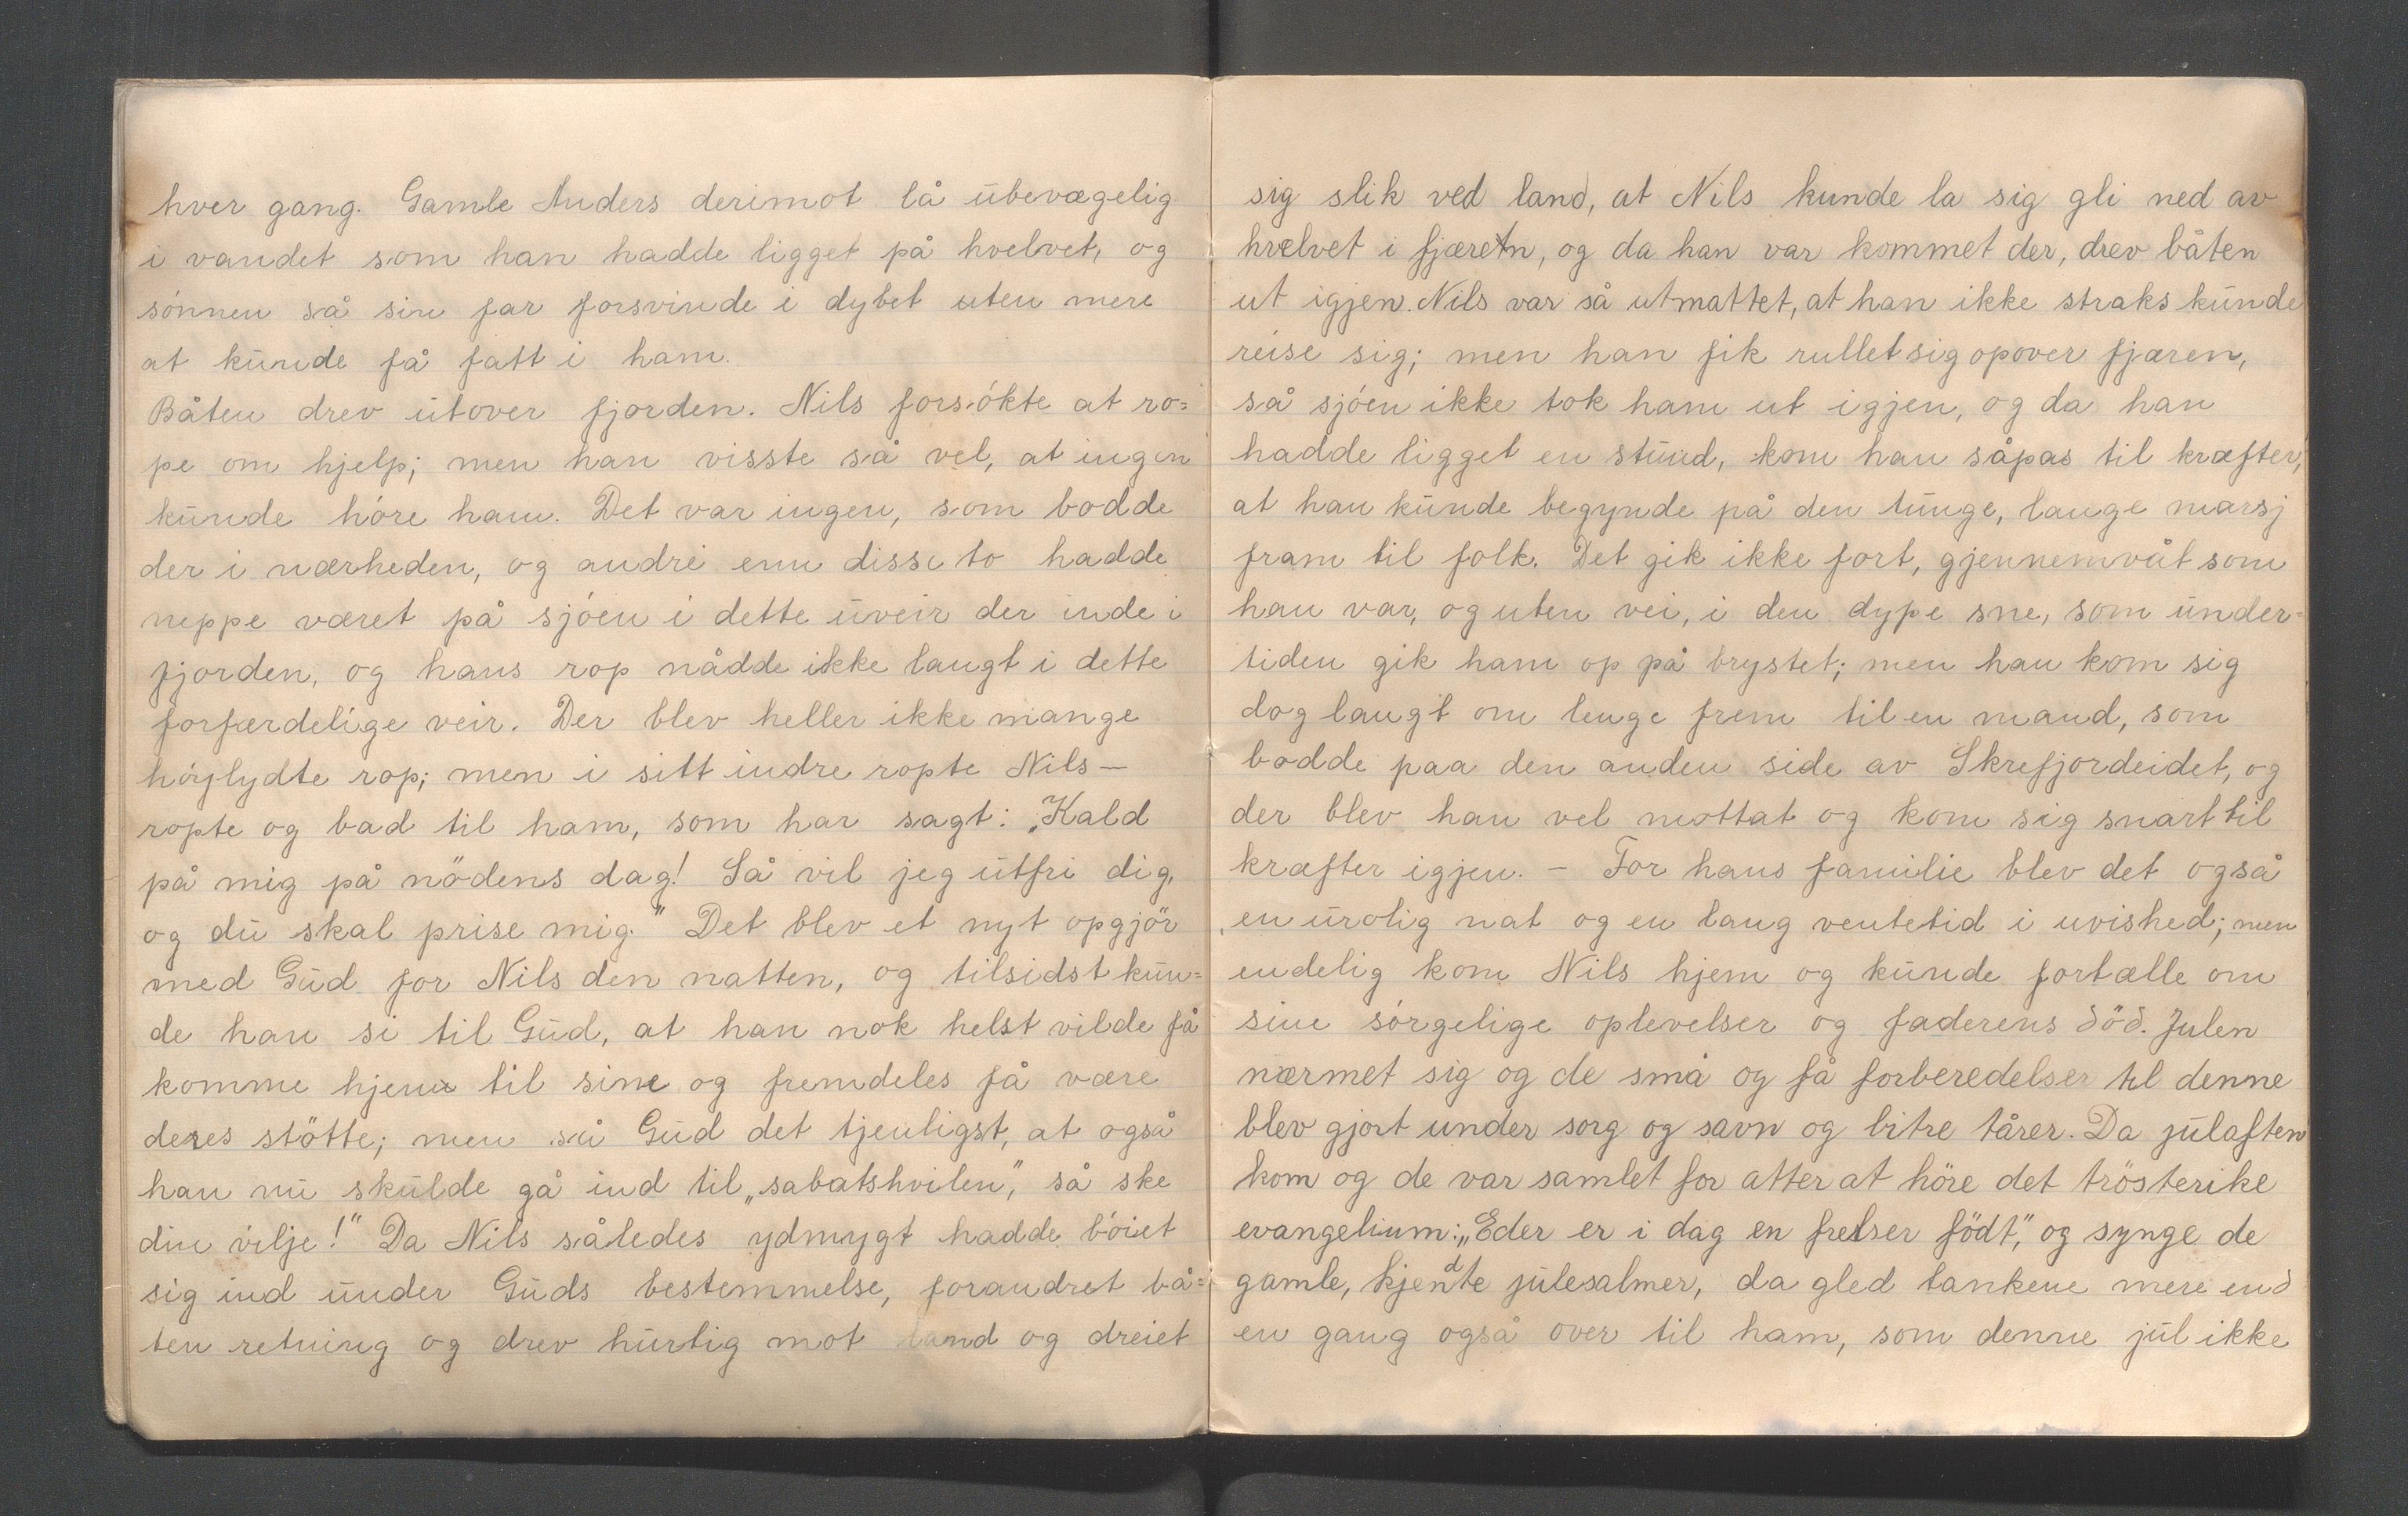 hver gang. Gamle Anders derimot lå ubevægelig
i vandet som han hadde ligget på hvelvet, og
sönnen så sin far forsvinde i dybet uten mere
at kunde få fatt i ham.
Båten drev utover fjorden. Nils forsökte at ro=
pe om hjelp; men han visste så vel, at ingen
kunde höre ham. Det var ingen, som bodde
der i nærheden, og andre enn disse to hadde
neppe været på sjöen i dette uveir der inde i
fjorden, og hans rop nådde ikke langt i dette
forfærdelige veir. Der blev heller ikke mange
höjlydte rop; men i sitt indre ropte Nils —
ropte og bad til ham, som har sagt: „Kald
på mig på nödens dag! Så vil jeg utfri dig,
og du skal prise mig." Det blev et nyt opgjör
med Gud for Nils den natten, og tilsidst kun=
de han si til Gud, at han nok helst vilde få
komme hjem til sine og fremdeles få være
deres stötte; men så Gud det tjenligst, at også
han nu skulde gå ind til „sabatshvilen", så ske
din vilje!" Da Nils således ydmygt hadde böiet
sig ind under Guds bestemmelse, forandret bå=
ten retning og drev hurtig mot land og dreiet
sig slik ved land, at Nils kunde la sig gli ned av
hvelvet i fjæren, og da han var kommet der, drev båten
ut igjen. Nils var så utmattet, at han ikke straks kunde
reise sig; men han fik rullet sig opover fjæren,
så sjöen ikke tok ham ut igjen, og da han
hadde ligget en stund, kom han såpas til kræfter,
at han kunde begynde på den tunge, lange marsj
fram til folk. Det gik ikke fort, gjennemvåt som
han var, og uten vei, i den dype sne, som under=
tiden gik ham op på brystet; men han kom sig
dog langt om lenge frem til en mand, som
bodde paa den anden side av Skrefjordeidet, og
der blev han vel mottat og kom sig snart til
kræfter igjen. – For hans familie blev det også
en urolig nat og en lang ventetid i uvished; men
endelig kom Nils hjem og kunde fortælle om
sine sörgelige oplevelser og faderens död. Julen
nærmet sig og de små og få forberedelser til denne
blev gjort under sorg og savn og bitre tårer. Da julaften
kom og de var samlet for atter at höre det trösterike
evangelium: „Eder er i dag en frelser födt", og synge de
gamle, kjendte julesalmer, da gled tankene mere end
en gang også over til ham, som denne jul ikke